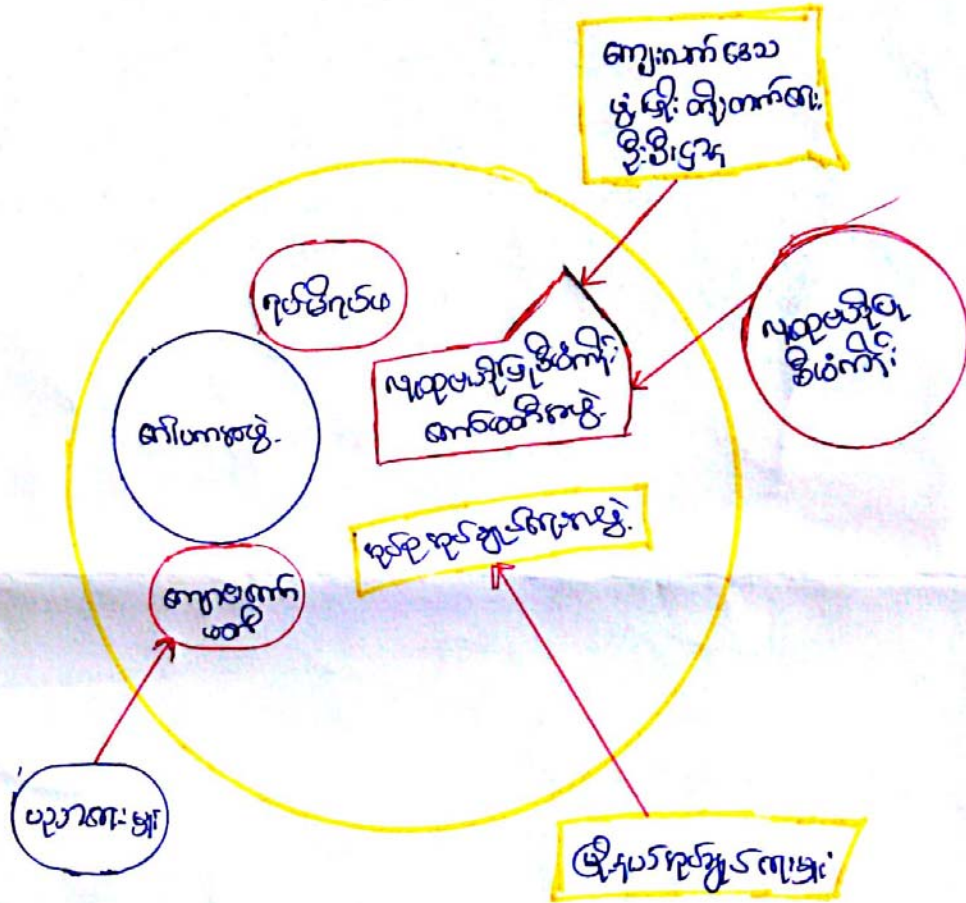 ကျေးလက်ဒေသ
ဖွံ့ဖြိုးတိုးတက်ရေး
ဦးစီးဌာန
ရပ်မိရပ်ဖ
လူထုဗဟိုပြုစီမံကိန်း
ကော်မတီအဖွဲ့
လူထုဗဟိုပြု
စီမံကိန်း
ဂေါပကအဖွဲ့
အုပ်စုအုပ်ချုပ်ရေးအဖွဲ့
ကျောင်းကော်
မတီ
ပညာရေးမှူး
မြို့နယ်အုပ်ချုပ်ရေးမှူး